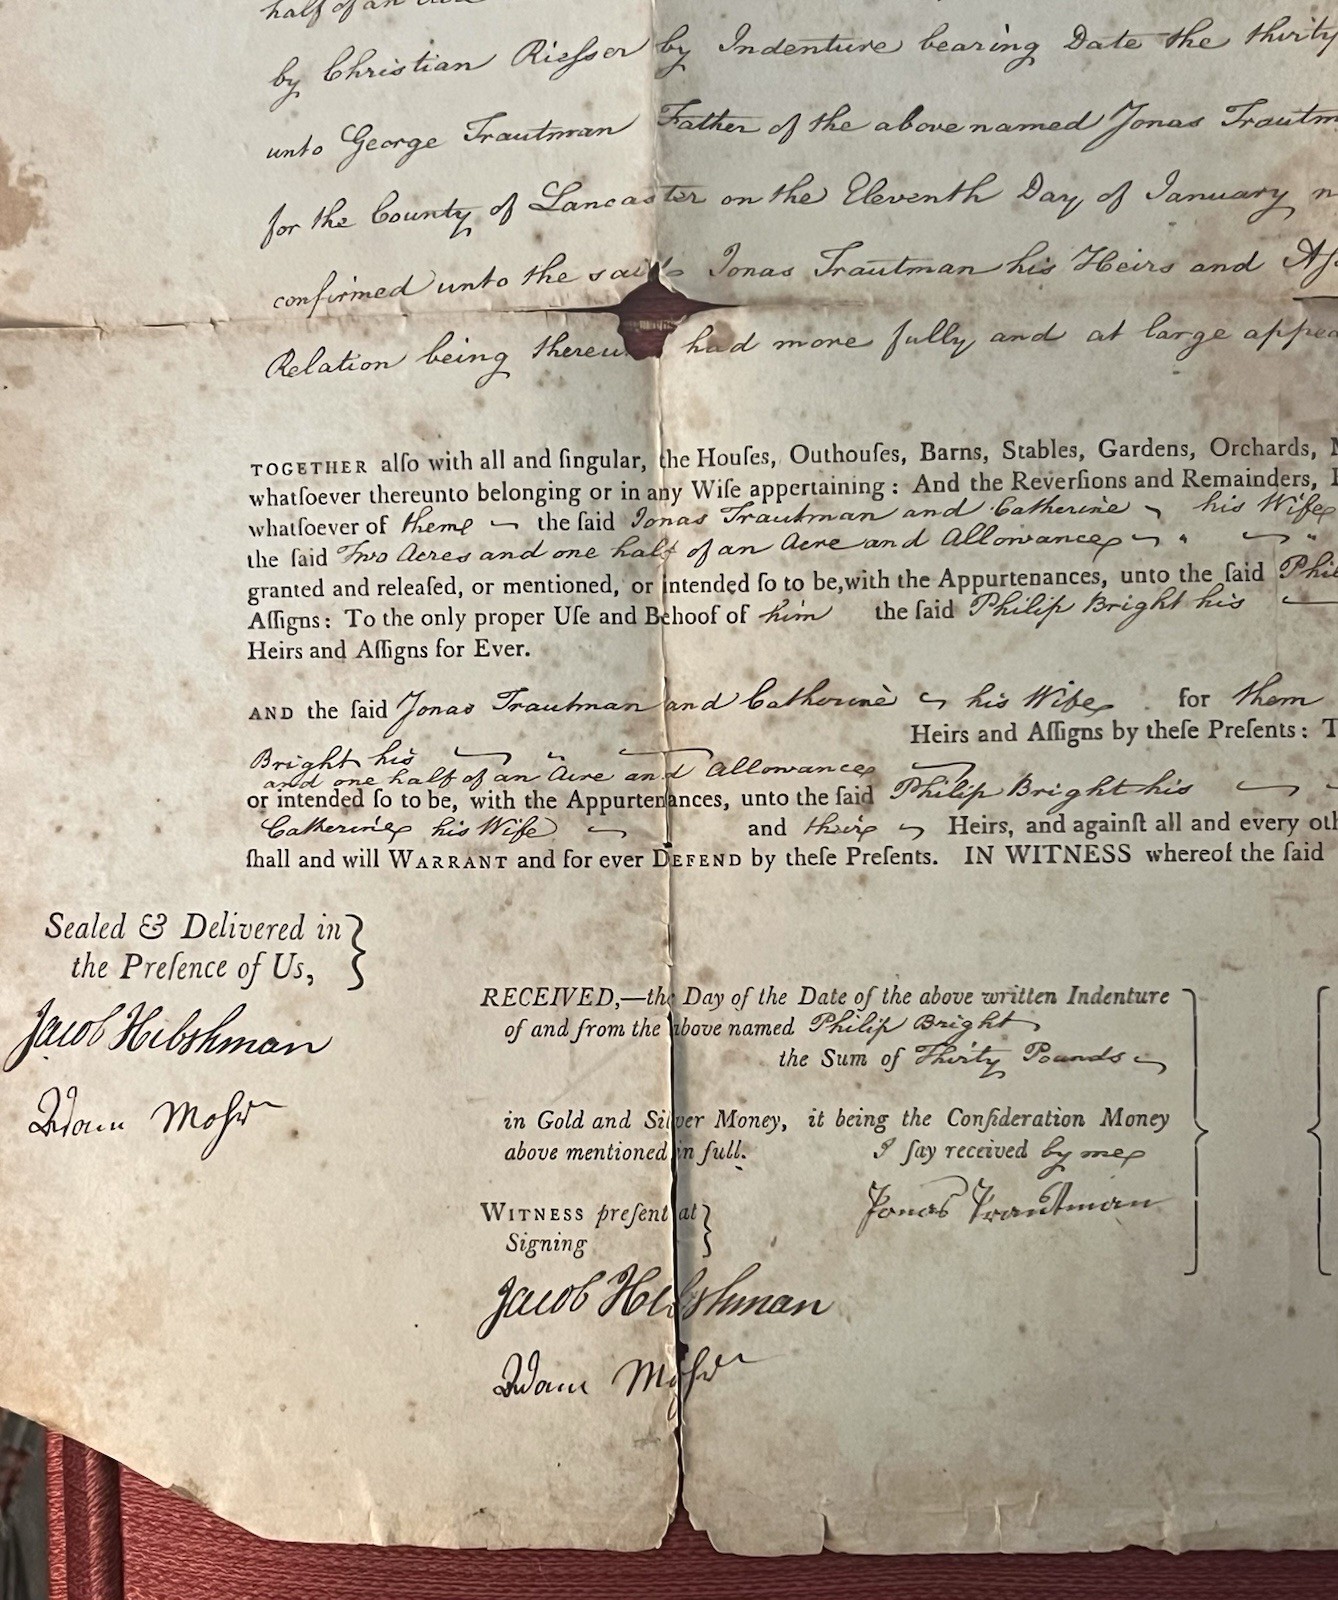 half of an Acre
by Christian Rieſser by Indenture bearing Date the thirty
unto George Trautman Father of the above named Jonas Trautm
for the County of Lancaster on the Eleventh Day of January
confirmed unto the said Jonas Trautman his Heirs and Aſs
Relation being thereu had more fully and at large appea
TOGETHER alſo with all and ſingular, the Houſes, Outhouſes, Barns, Stables, Gardens, Orchards,
whatſoever thereunto belonging or in any Wiſe appertaining: And the Reverſions and Remainders,
whatſoever of them the ſaid Jonas Trautman and Catherine his Wife
the ſaid Two Acres and one half of an Acre and Allowance
granted and releaſed, or mentioned, or intended ſo to be, with the Appurtenances, unto the ſaid Phil
Aſſigns: To the only proper Uſe and Behoof of him the ſaid Philip Bright his
Heirs and Aſſigns for Ever.
AND the ſaid Jonas Trautman and Catherine his Wife for them
Heirs and Aſſigns by theſe Preſents: T
Bright his
and one half of an Acre and Allowance
or intended ſo to be, with the Appurtenances, unto the ſaid Philip Bright his
Catherine his Wife and their Heirs, and againſt all and every oth
ſhall and will WARRANT and for ever DEFEND by theſe Preſents. IN WITNESS whereof the ſaid
Sealed & Delivered in
the Preſence of Us,
Jacob Hibshman
Adam Mohr
RECEIVED,—the Day of the Date of the above written Indenture
of and from the above named Philip Bright
the Sum of Thirty Pounds
in Gold and Silver Money, it being the Conſideration Money
above mentioned in full. I ſay received by me
Jonas Trautman
WITNESS preſent at
Signing
Jacob Hibshman
Adam Mohr